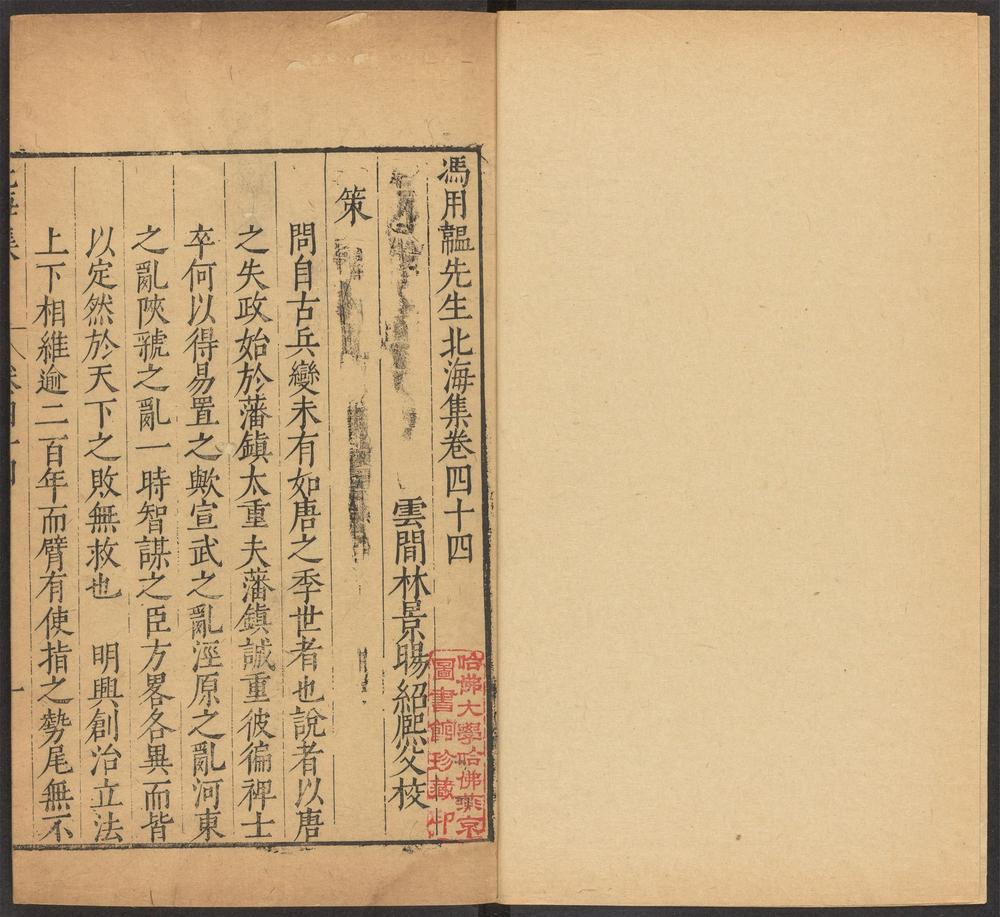 馮用韞先生北海集卷四十四
雲間林景暘紹熈父校
策
問自古兵變未有如唐之季世者也說者以唐
之失政始於藩鎮太重夫藩鎮誠重彼徧裨士
卒何以得易置之歟宣武之亂涇原之亂河東
之亂陝虢之亂一時智謀之臣方畧各異而皆
以定然於天下之敗無救也　明興創治立法
上下相維逾二百年而臂有使指之勢尾無不
卷四十四
一
哈佛大學哈佛燕京
圖書館珍藏印